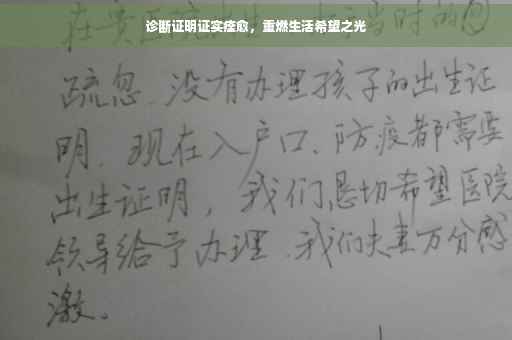 诊断证明证实痊愈，重燃生活希望之光
疏忽.没有办理孩子的出生证
明.现在入户口、防疫都需要
出生证明，我们恳切希望医院
领导给予办理.我们夫妻万分感
激。